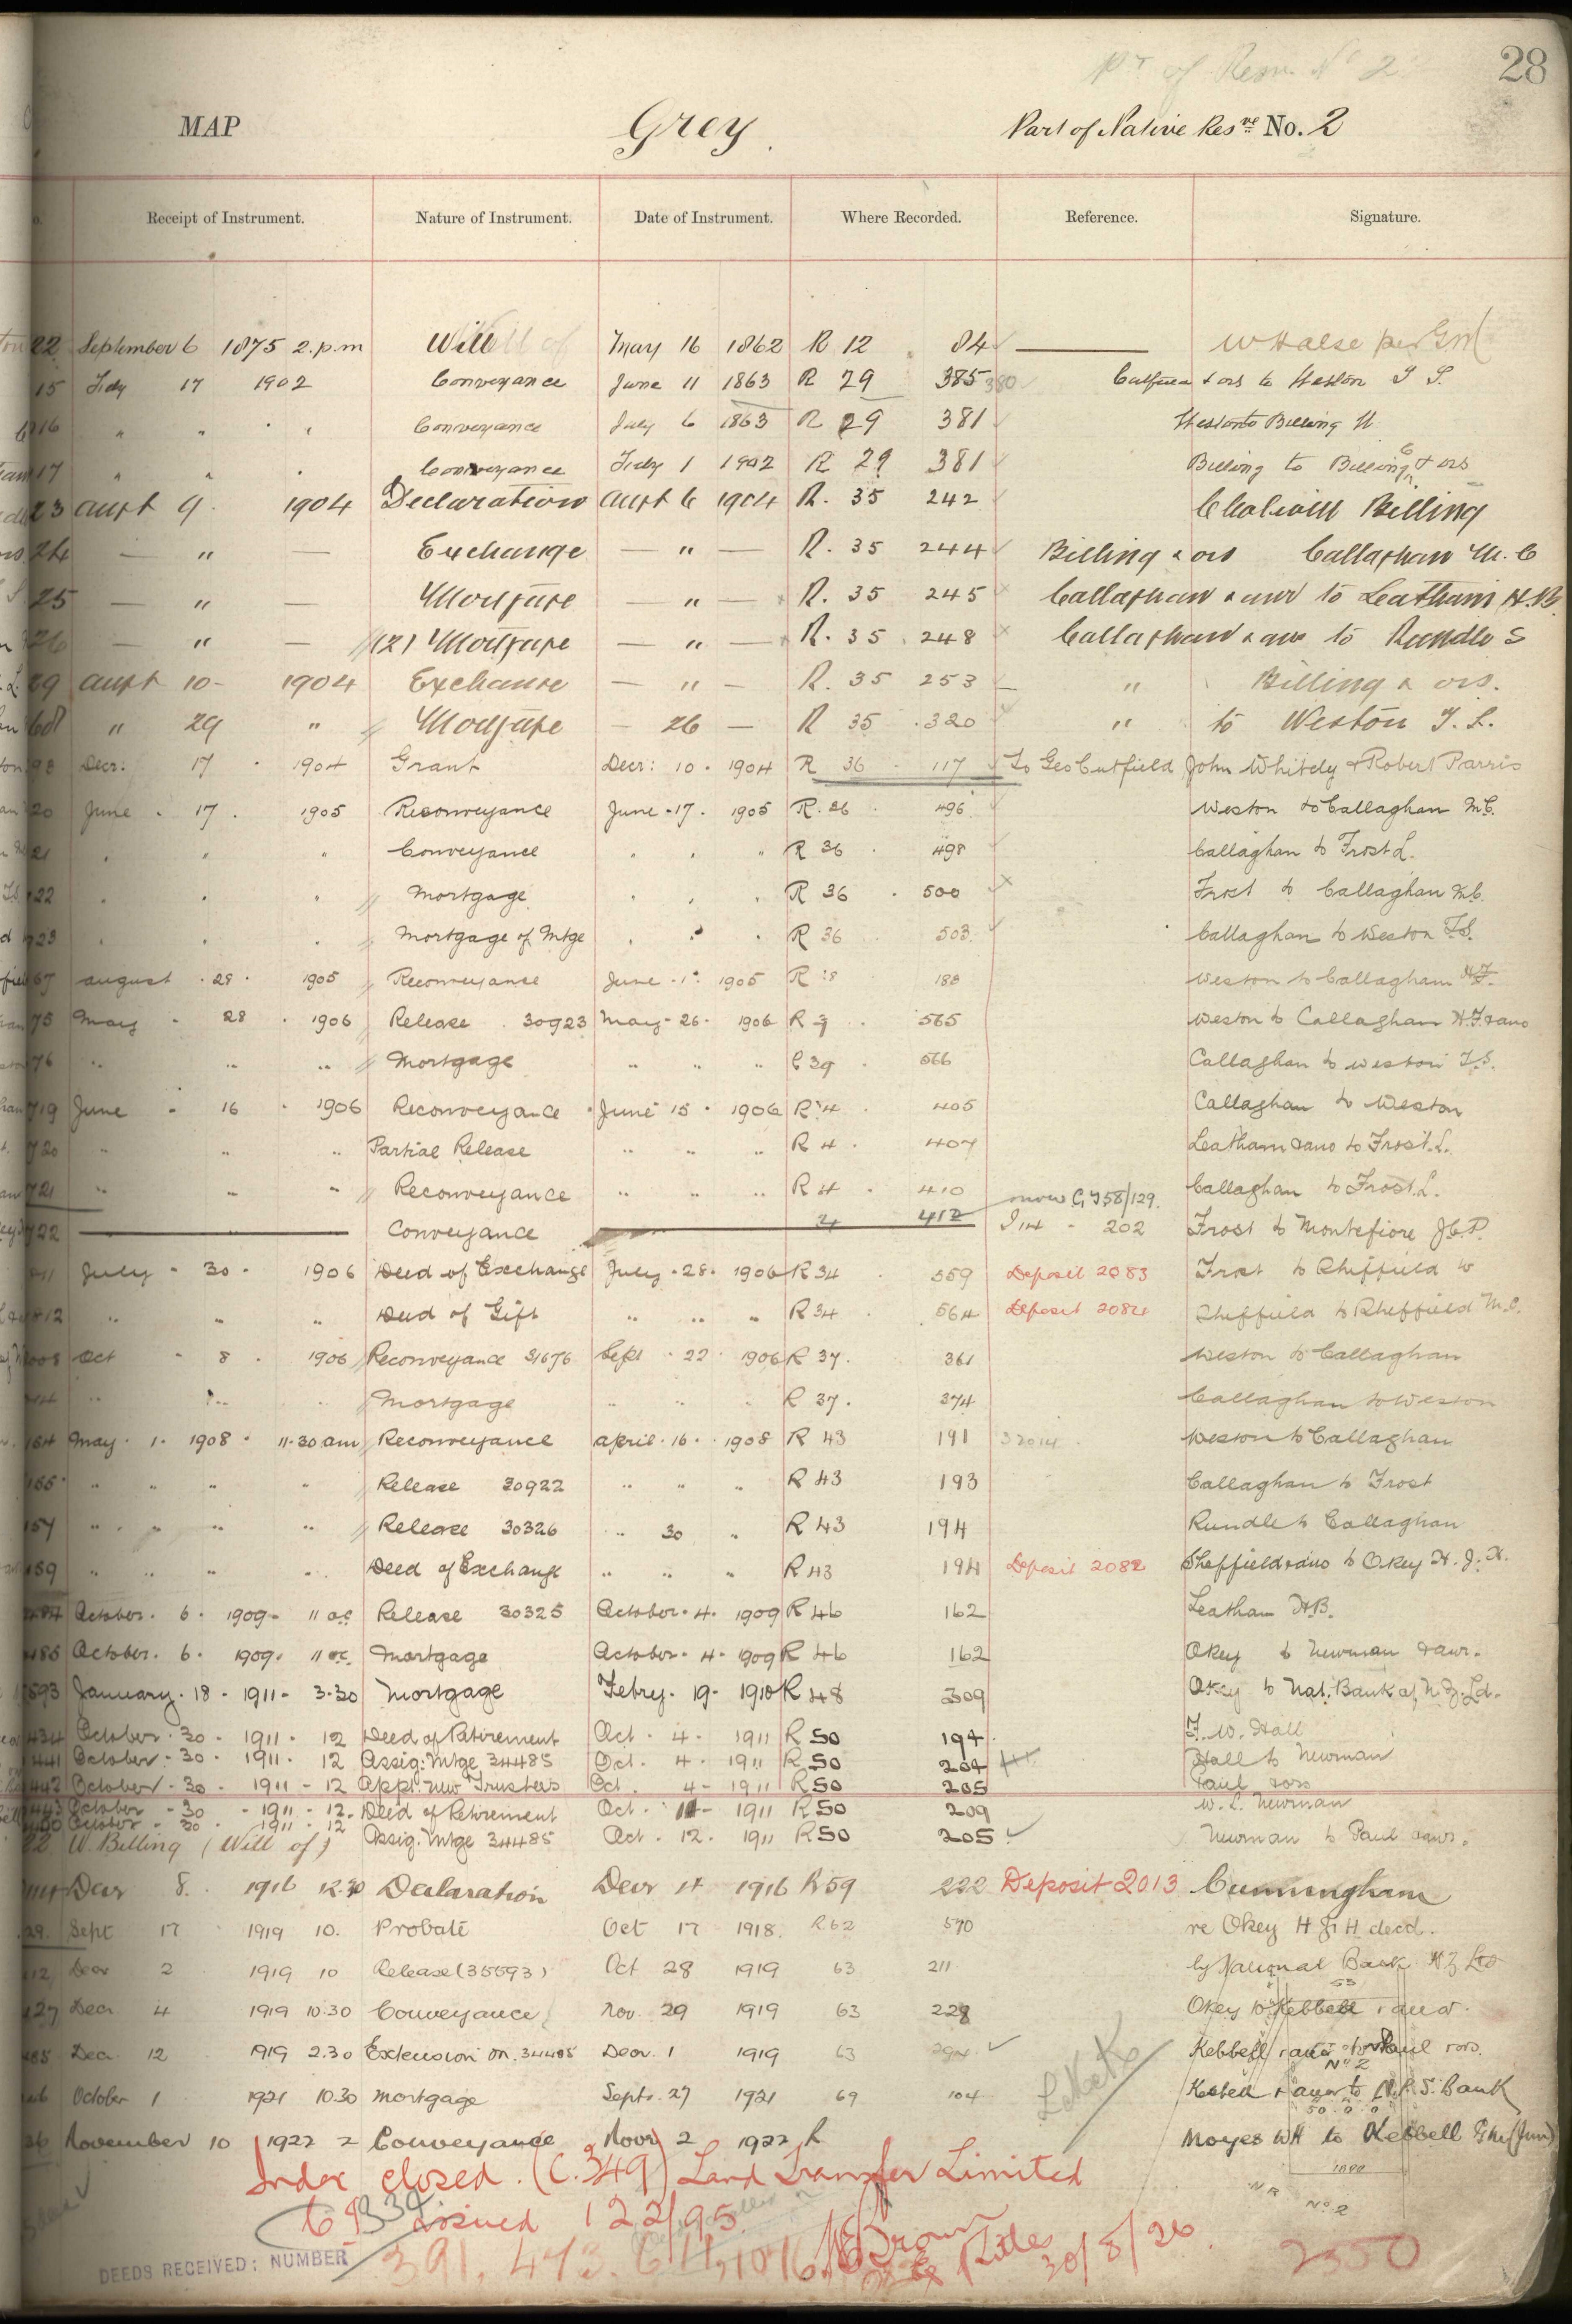 28
MAP Grey Part of Native Resve No. 2
Receipt of Instrument. Nature of Instrument. Date of Instrument. Where Recorded. Reference. Signature.
22 September 6 1875 2.p.m Will May 16 1862 R 12 84
15 July 17 1902 Conveyance June 11 1863 R 29 385 380 & ors to Weston T S.
16 " " " Conveyance July 6 1863 R 29 381 Weston to Billing W
17 " " " Conveyance July 1 1902 R 29 381 Billing to Billing & ors
23 Augt 9 1904 Declaration Augt 6 1904 R. 35 242 Billing
24 — " — Exchange — " — R. 35 244 Billing & ors Callaghan M. C
25 — " — Mortgage — " — R. 35 245 Callaghan & anr to Leatham H.B
26 — " — (2) Mortgage — " — R. 35 248 Callaghan & anr to Rundle S
29 Augt 10 - 1904 Exchange — " — R. 35 253 " Billing & ors.
" 29 " Mortgage — 26 — R 35 . 320 " to Weston T. S.
98 Decr: 17 . 1904 Grant Decr: 10 . 1904 R 36 117 To Geo Cutfield John Whitely & Robert Parris
20 June . 17 . 1905 Reconveyance June . 17 . 1905 R. 36 496 Weston to Callaghan M.C.
21 " " " Conveyance " " " R 36 . 498 Callaghan to Frost L.
22 " " " Mortgage " " " R 36 . 500 Frost to Callaghan M.C.
23 " " " Mortgage of Mtge " " " R 36 503 Callaghan to Weston T.S.
67 August . 28 . 1905 Reconveyance June . 1 . 1905 R 188 Weston to Callaghan
75 May - 28 . 1906 Release . 30923 May - 26 . 1906 R 565 Weston to Callaghan H.F & ano
76 " " " Mortgage " " " 39 . 566 Callaghan to Weston T.S.
719 June - 16 . 1906 Reconveyance June 15 . 1906 R 4 . 405 Callaghan to Weston
720 " " " Partial Release " " " R 4 . 407 Leatham & ano to Frost. L.
721 " " " Reconveyance " " " R 4 . 410 now C.T 58/129. Callaghan to Frost. L.
722 Conveyance 4 412 - 202 Frost to Montefiore J.C.P.
July - 30 . 1906 Deed of Exchange July . 28 . 1906 R 34 . 559 Deposit 2083 Frost to Sheffield W
12 " " " Deed of Gift " " " R 34 . 564 Deposit 2084 Sheffield to Sheffield M.C.
Oct - 8 . 1906 Reconveyance 31676 Sept . 22 . 1906 R 37 . 361 Weston to Callaghan
" " " Mortgage " " " R 37 . 374 Callaghan to Weston
164 May . 1 . 1908 . 11.30 am Reconveyance April . 16 . 1908 R 43 191 Weston to Callaghan
" " " " Release 30922 " " " R 43 193 Callaghan to Frost
" " " " Release 30326 " 30 " R 43 194 Rundle to Callaghan
159 " " " " Deed of Exchange " " " R 43 194 Deposit 2082 Sheffield & ano to Okey H. J. H.
October . 6 . 1909 - 11 Release 30325 October . 4 . 1909 R 46 162 Leatham H.B.
485 October . 6 . 1909 . 11 Mortgage October . 4 . 1909 R 46 162 Okey to Newman & anr.
593 January . 18 - 1911 - 3.30 Mortgage Febry . 19 - 1910 R 48 309 Okey to Nat: Bank of N.Z. Ld.
434 October . 30 - 1911 - 12 Deed of Retirement Oct . 4 . 1911 R 50 194 F. W. Hall
441 October - 30 . 1911 . 12 Assig: Mtge 34485 Oct . 4 . 1911 R 50 204 Hall to Newman
442 October - 30 . 1911 - 12 Appt. new Trustees Oct . 4 - 1911 R 50 205 Paul & ors
443 October - 30 - 1911 - 12 . Deed of Retirement Oct . 11 - 1911 R 50 209 W. L. Newman
October . 30 . 1911 . 12 Assig: Mtge 34485 Oct . 12 . 1911 R 50 205 Newman to Paul & anr.
22 W. Billing (Will of)
Decr 8 . 1916 12.30 Declaration Decr 4 1916 R 59 222 Deposit 2013 Cunningham
29. Sept 17 1919 10. Probate Oct 17 1918. R 62 570 re Okey H J H decd.
Decr 2 1919 10 Release (35593) Oct 28 1919 63 211 by National Bank N Z Ltd
127 Decr. 4 1919 10.30 Conveyance Nov. 29 1919 63 228 Okey to Kebbell & anor.
Decr. 12 1919 2.30 Extension M. 34485 Decr. 1 1919 63 Kebbell & anor to Paul & ors.
October 1 1921 10.30 Mortgage Septr. 27 1921 69 104 Kebbell & anor to N.P.S. Bank
November 10 1922 2 Conveyance Novr 2 1922 R Noyes W H to Kebbell (Junr)
Index closed. (C. 349) Land Transfer Limited
issued 122/95.
30/8/26.
DEEDS RECEIVED: NUMBER 391, 473, 2350